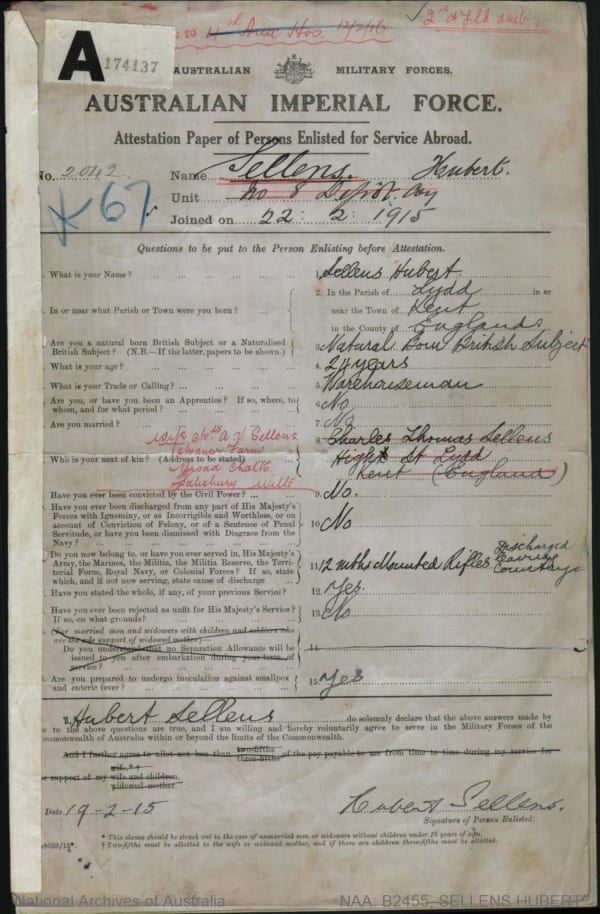 TO 4th Aux Hos. 12/2/16
2nd A Fld amb
A 174137
AUSTRALIAN MILITARY FORCES.
AUSTRALIAN IMPERIAL FORCE.
Attestation Paper of Persons Enlisted for Service Abroad.
No. 2042 Name Sellens. Hubert.
67
Unit No 8 Depot. Coy
Joined on 22: 2: 1915
Questions to be put to the Person Enlisting before Attestation.
What is your Name? ... 1. Sellens Hubert
In or near what Parish or Town were you born? ... 2. In the Parish of Lydd in or
near the Town of Kent
in the County of England
Are you a natural born British Subject or a Naturalised British Subject? (N.B.—If the latter, papers to be shown.) 3. Natural Born British Subject
What is your age? ... 4. 24 years
What is your Trade or Calling? ... 5. Warehouseman
Are you, or have you been an Apprentice? If so, where, to whom, and for what period? ... 6. No
Are you married? ... 7. No
Wife Mrs A V Sellens
Farm
Broad Chalke
Salisbury Wilts
Who is your next of kin? (Address to be stated) 8. Charles Thomas Sellens
High St Lydd
Kent (England)
Have you ever been convicted by the Civil Power? ... 9. No.
Have you ever been discharged from any part of His Majesty's
Forces with Ignominy, or as Incorrigible and Worthless, or on
account of Conviction of Felony, or of a Sentence of Penal
Servitude, or have you been dismissed with Disgrace from the
Navy? ... 10. No
Do you now belong to, or have you ever served in, His Majesty's
Army, the Marines, the Militia, the Militia Reserve, the Terri-
torial Force, Royal Navy, or Colonial Forces? If so, state
which, and if not now serving, state cause of discharge ... 11. 12 mths Mounted Rifles Discharged
Country
Have you stated the whole, if any, of your previous Service? 12. Yes.
Have you ever been rejected as unfit for His Majesty's Service?
If so, on what grounds? ... 13. No
(For married men and widowers with children and soldiers who
are the sole support of widowed mother)—
Do you understand that no Separation Allowance will be
issued to you after embarkation during your term of
service? ... 14.
Are you prepared to undergo inoculation against smallpox
and enteric fever? ... 15. Yes
I, Hubert Sellens do solemnly declare that the above answers made by
me to the above questions are true, and I am willing and hereby voluntarily agree to serve in the Military Forces of the
Commonwealth of Australia within or beyond the limits of the Commonwealth.
And I further agree to allot not less than two-fifths three-fifths of the pay payable to me from time to time during my service for
the support of my wife*† wife and children. widowed mother.
Date 19-2-15 Hubert Sellens.
Signature of Person Enlisted.
* This clause should be struck out in the case of unmarried men or widowers without children under 18 years of age.
† Two-fifths must be allotted to the wife or widowed mother, and if there are children three-fifths must be allotted.
National Archives of Australia NAA: B2455, SELLENS HUBERT